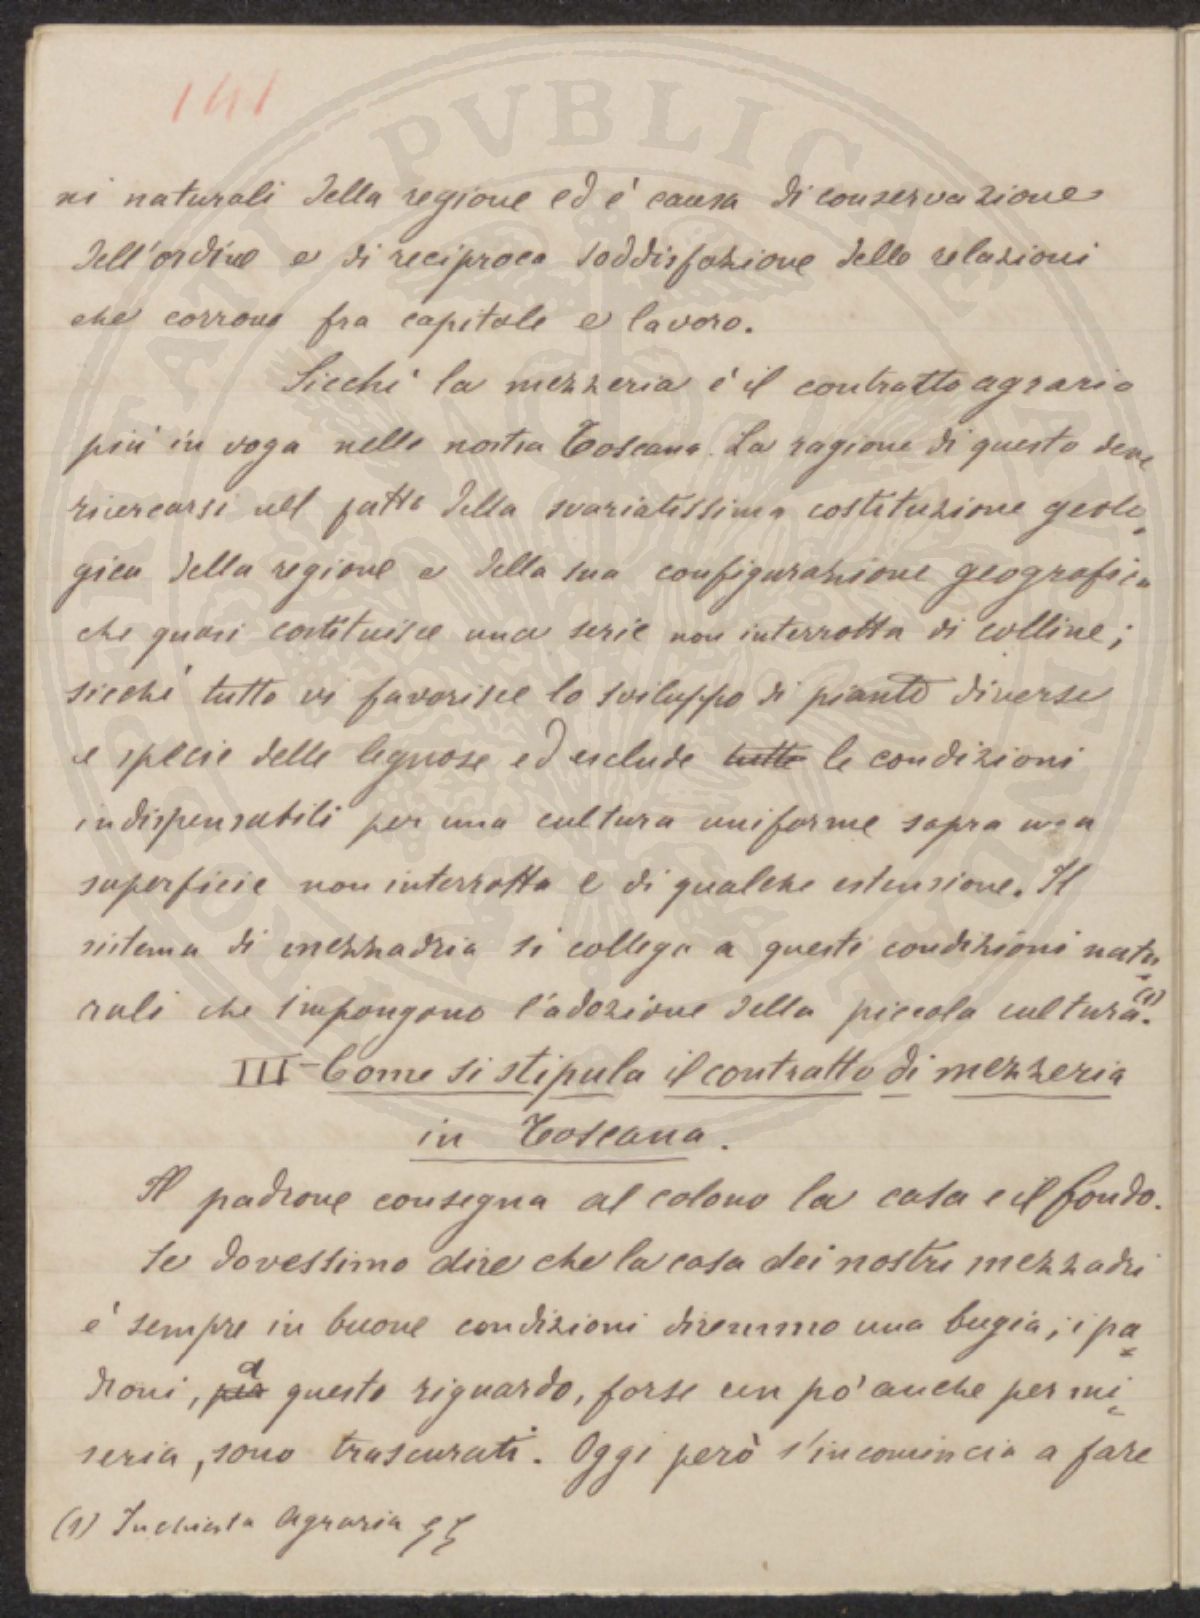 141
ni naturali della regione ed é causa di conservazione
dell'ordine e di reciproca soddisfazione delle relazioni
che corrono fra capitale e lavoro.
Sicché la mezzeria é il contratto agrario
piú in voga nella nostra Toscana. La ragione di questo deve
ricercarsi nel fatto della svariatissima costituzione geolo-
gica della regione e della sua configurazione geografica
che quasi costituisce una serie non interrotta di colline;
sicché tutto vi favorisce lo sviluppo di piante diverse
e specie delle legnose ed esclude tutte le condizioni
indispensabili per una cultura uniforme sopra una
superficie non interrotta e di qualche estensione. Il
sistema di mezzadria si collega a questi condizioni natu-
rali che impongono l'adozione della piccola cultura.(1)
III - Come si stipula il contratto di mezzeria
in Toscana.
Il padrone consegna al colono la casa e il fondo.
Se dovessimo dire che la casa dei nostri mezzadri
é sempre in buone condizioni diremmo una bugia; i pa=
droni, per a questo riguardo, forse un pò anche per mi-
seria, sono trascurati. Oggi però s'incomincia a fare
(1) Inchiesta Agraria
PVBLICAE